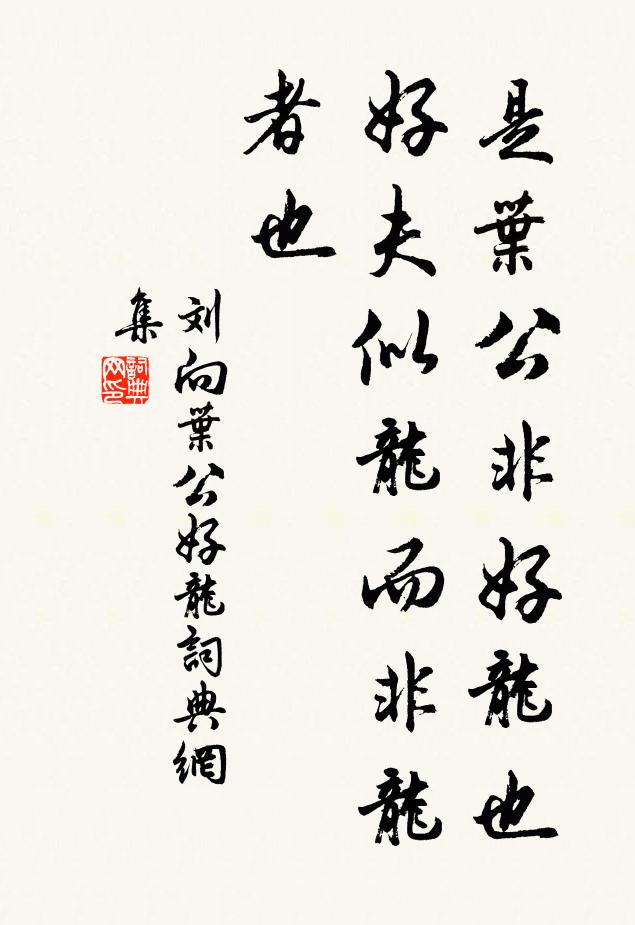 是葉公非好龍也
好夫似龍而非龍
者也
刘向葉公好龍詞典網
集
詞典
网印